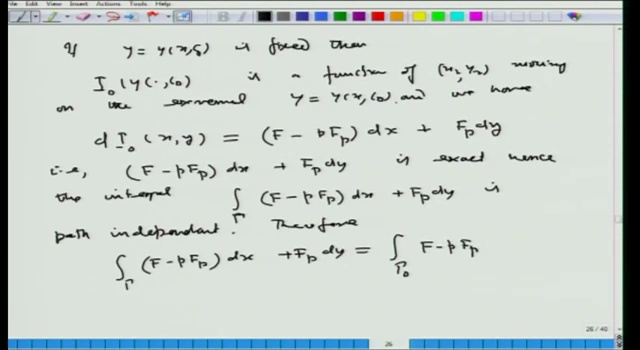 File Edit View Insert Actions Tools Help
If y = y(x,c₀) is fixed then
I₀(y(·,c₀) is a function of (x₂,y₂) moving
on the extremal y = y(x,c₀) and we have
d I₀(x,y) = (F - pF_p) dx + F_p dy
i.e, (F - pF_p) dx + F_p dy is exact hence
the integral ∫_Γ (F - pF_p) dx + F_p dy is
path independant. Therefore
∫_Γ (F - pF_p) dx + F_p dy = ∫_Γ₀ F - pF_p
26 / 40
26